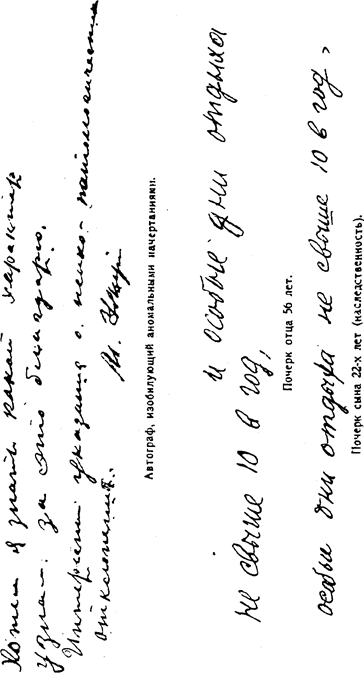 Хотел я знать какой характер
узнал: за это благодарю.
Интересны указания о психо-патологических
отклонениях.
Автограф, изобилующий аномальными начертаниями.
и особые дни отдыха
не свыше 10 в год,
Почерк отца 56 лет.
особые дни отдыха не свыше 10 в год,
Почерк сына 22-х лет (наследственность).